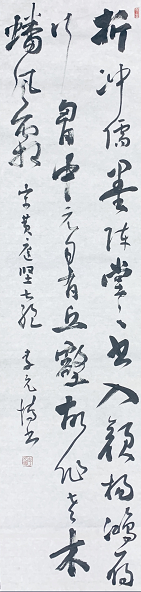 折冲儒墨阵堂々书入颜杨鸿雁
行胸中元自有丘壑故作老木
蟠风霜 宋黄庭坚七绝 李元博书